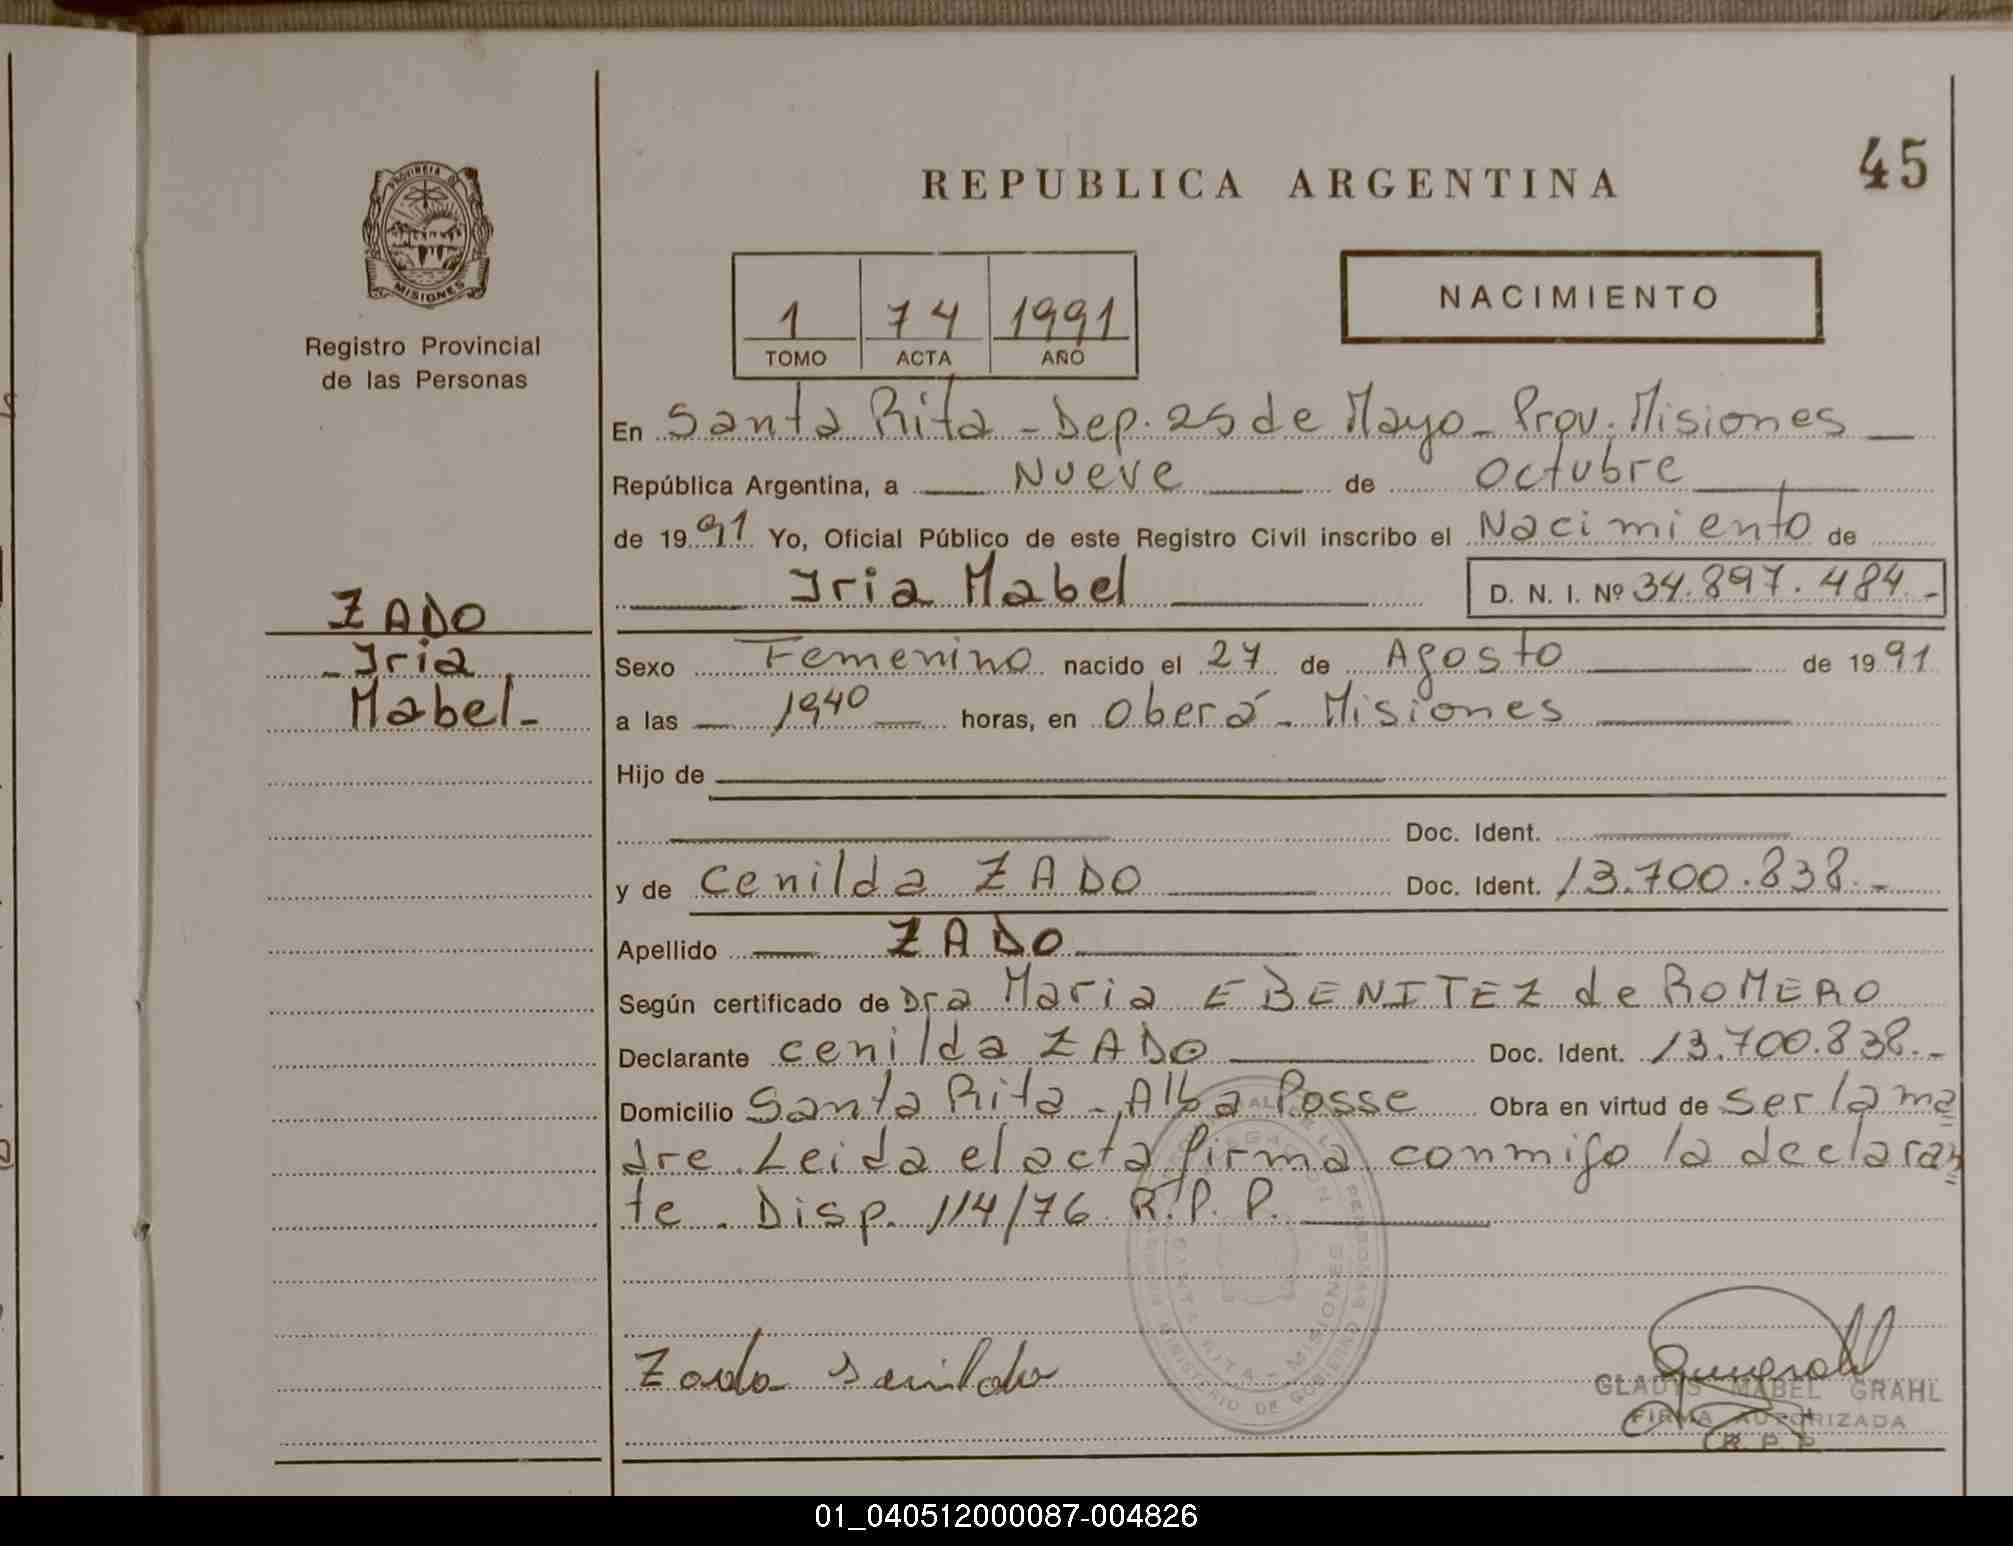 45
REPUBLICA ARGENTINA
PROVINCIA DE
MISIONES
Registro Provincial
de las Personas
1 74 1991
TOMO ACTA AÑO
NACIMIENTO
En Santa Rita - Dep. 25 de Mayo - Prov. Misiones
República Argentina, a Nueve de Octubre
de 1991 Yo, Oficial Público de este Registro Civil inscribo el Nacimiento de
Iria Mabel D. N. I. Nº 34.897.484.-
ZADO
- Iria
Mabel-
Sexo Femenino nacido el 27 de Agosto de 1991
a las 1940 horas, en Oberá - Misiones
Hijo de
Doc. Ident.
y de Cenilda ZADO Doc. Ident. 13.700.838.-
Apellido ZADO
Según certificado de Dra Maria E BENITEZ de ROMERO
Declarante Cenilda ZADO Doc. Ident. 13.700.838.-
Domicilio Santa Rita - Alba Posse Obra en virtud de Ser la ma
dre. Leida el acta firma conmigo la declaran
te. Disp. 114/76 R.P.P.
SANTA RITA - MISIONES
MINISTERIO DE GOBIERNO
Zado Senilda
GLADYS MABEL GRAHL
FIRMA AUTORIZADA
R. P. P.
01_040512000087-004826